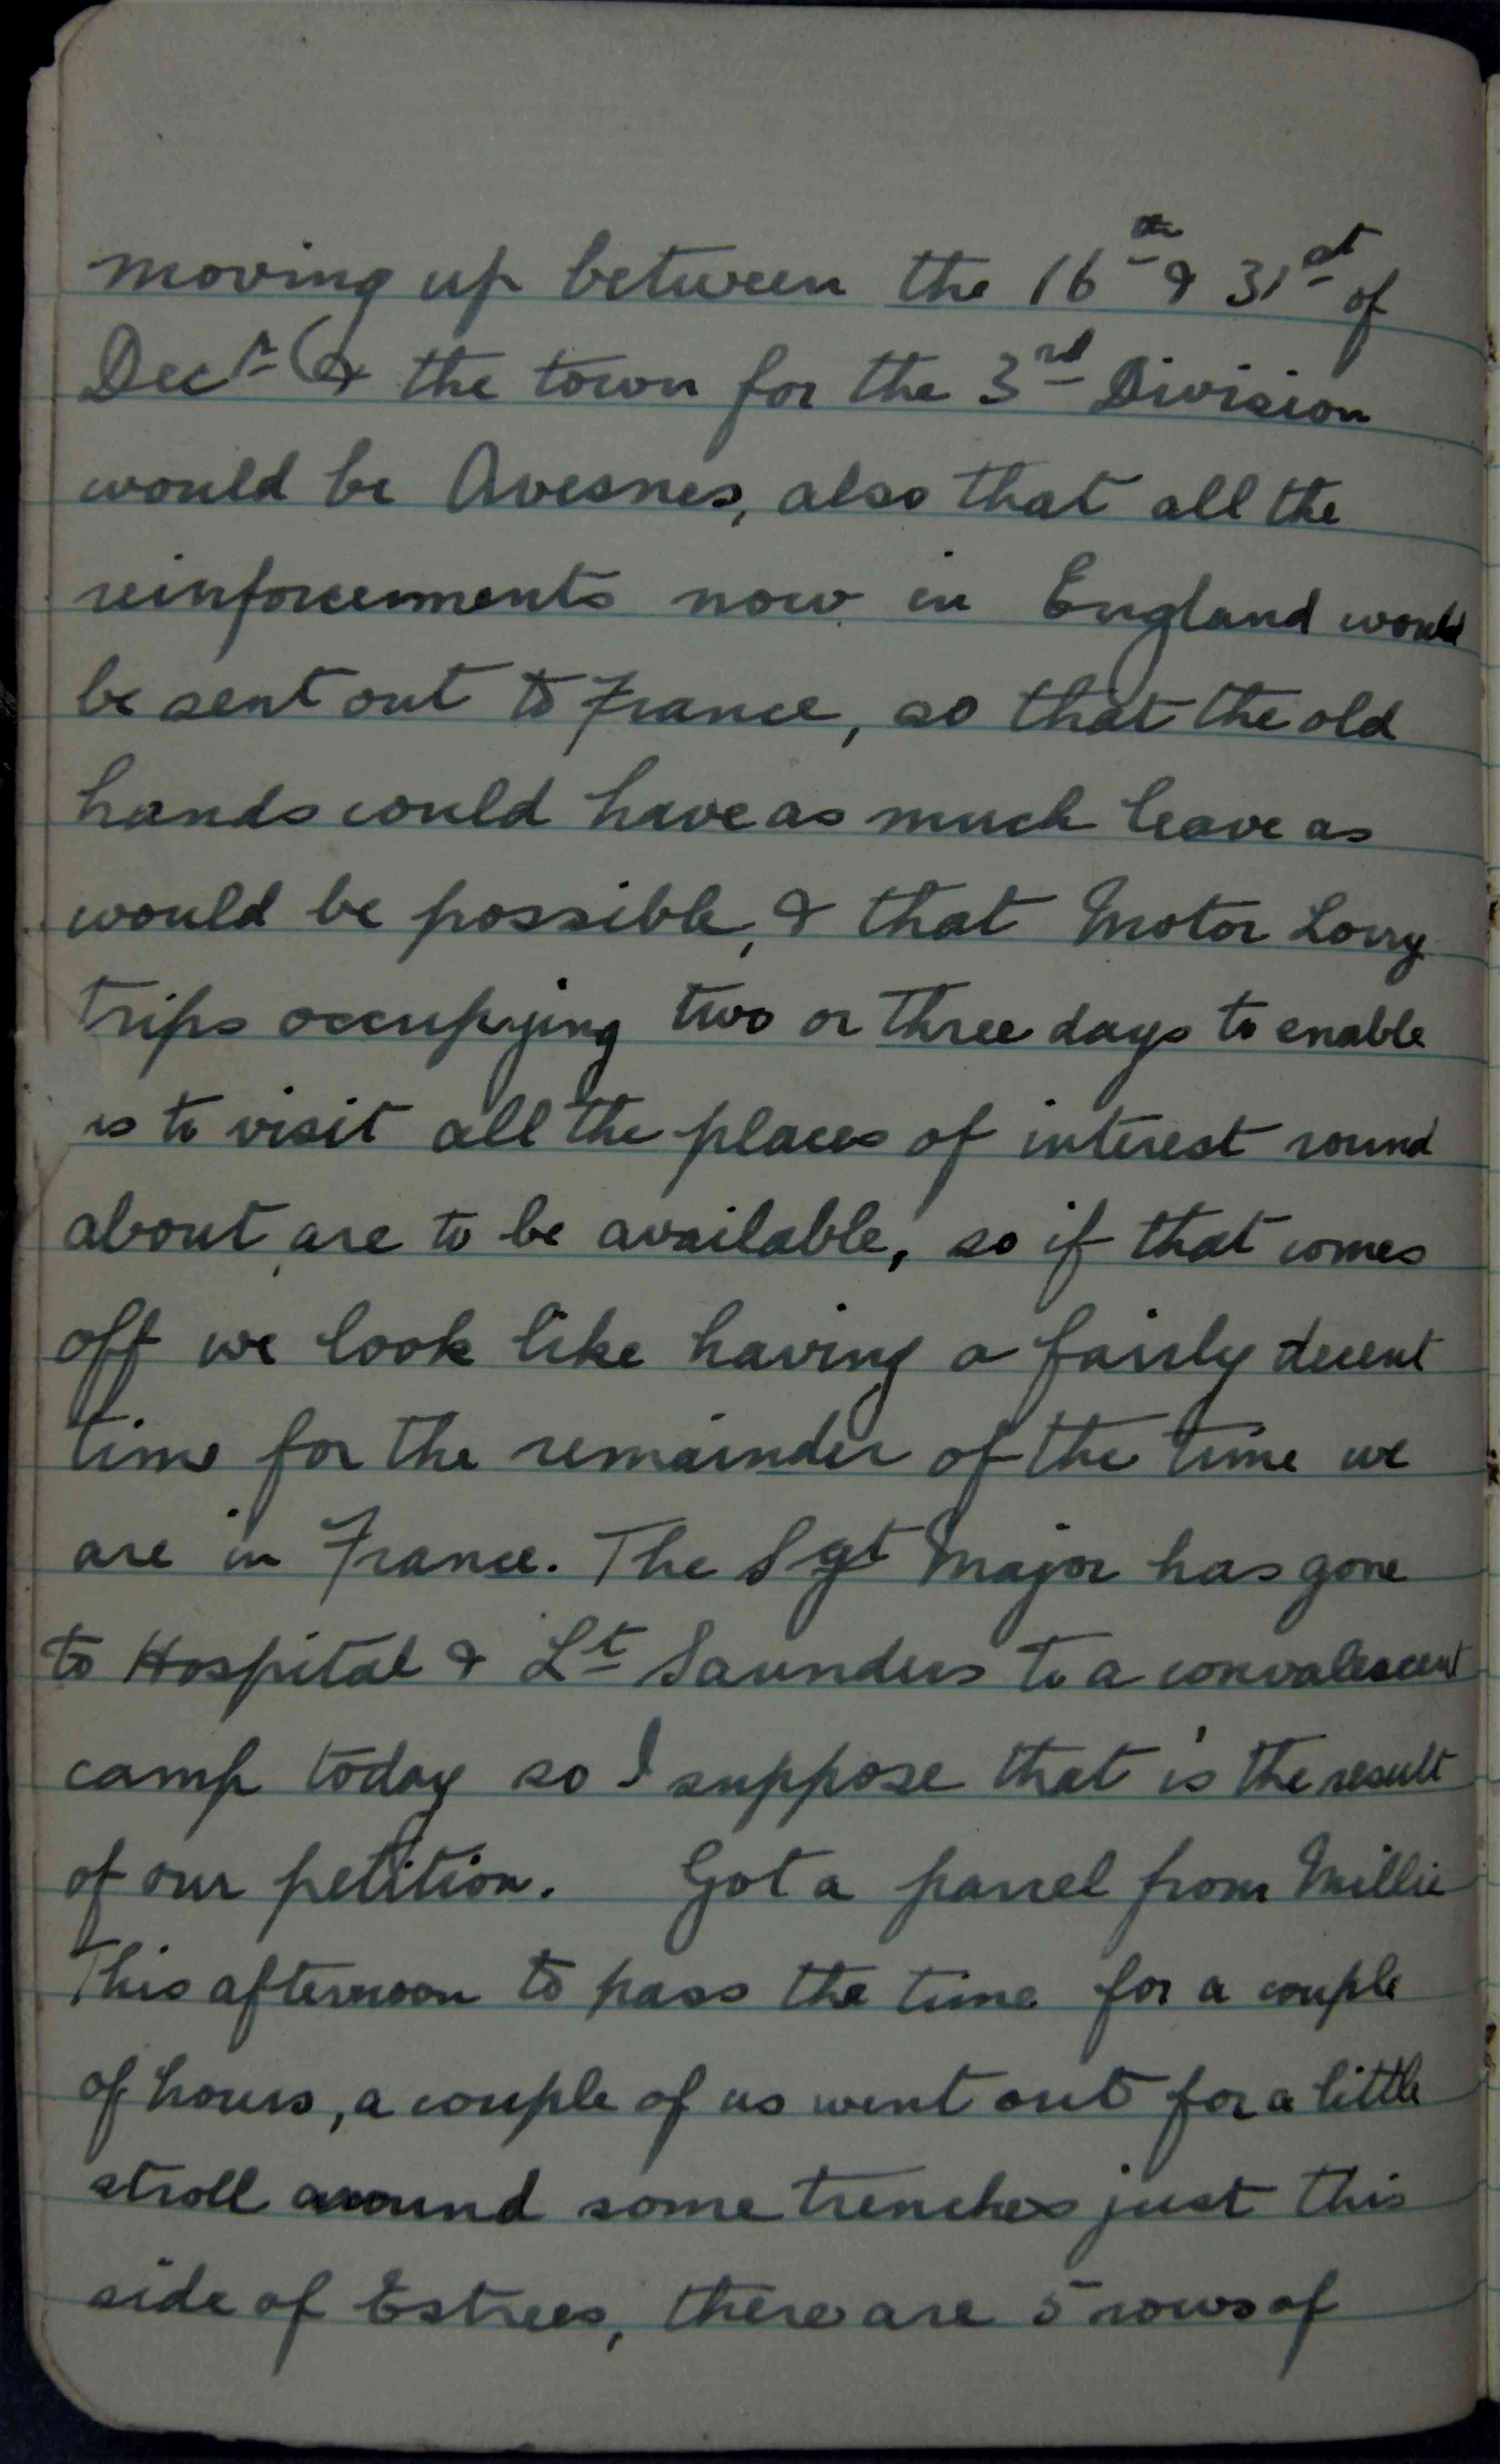 moving up between the 16th & 31st of
Decr (& the town for the 3rd Division
would be Avesnes, also that all the
reinforcements now in England would
be sent out to France, so that the old
hands could have as much leave as
would be possible, & that Motor Lorry
trips occupying two or three days to enable
us to visit all the places of interest round
about, are to be available, so if that comes
off we look like having a fairly decent
time for the remainder of the time we
are in France. The Sgt Major has gone
to Hospital & Lt Saunders to a convalescent
camp today so I suppose that is the result
of our petition. Got a parcel from Millie
This afternoon to pass the time for a couple
of hours, a couple of us went out for a little
stroll around some trenches just this
side of Estrees, there are 5 rows of